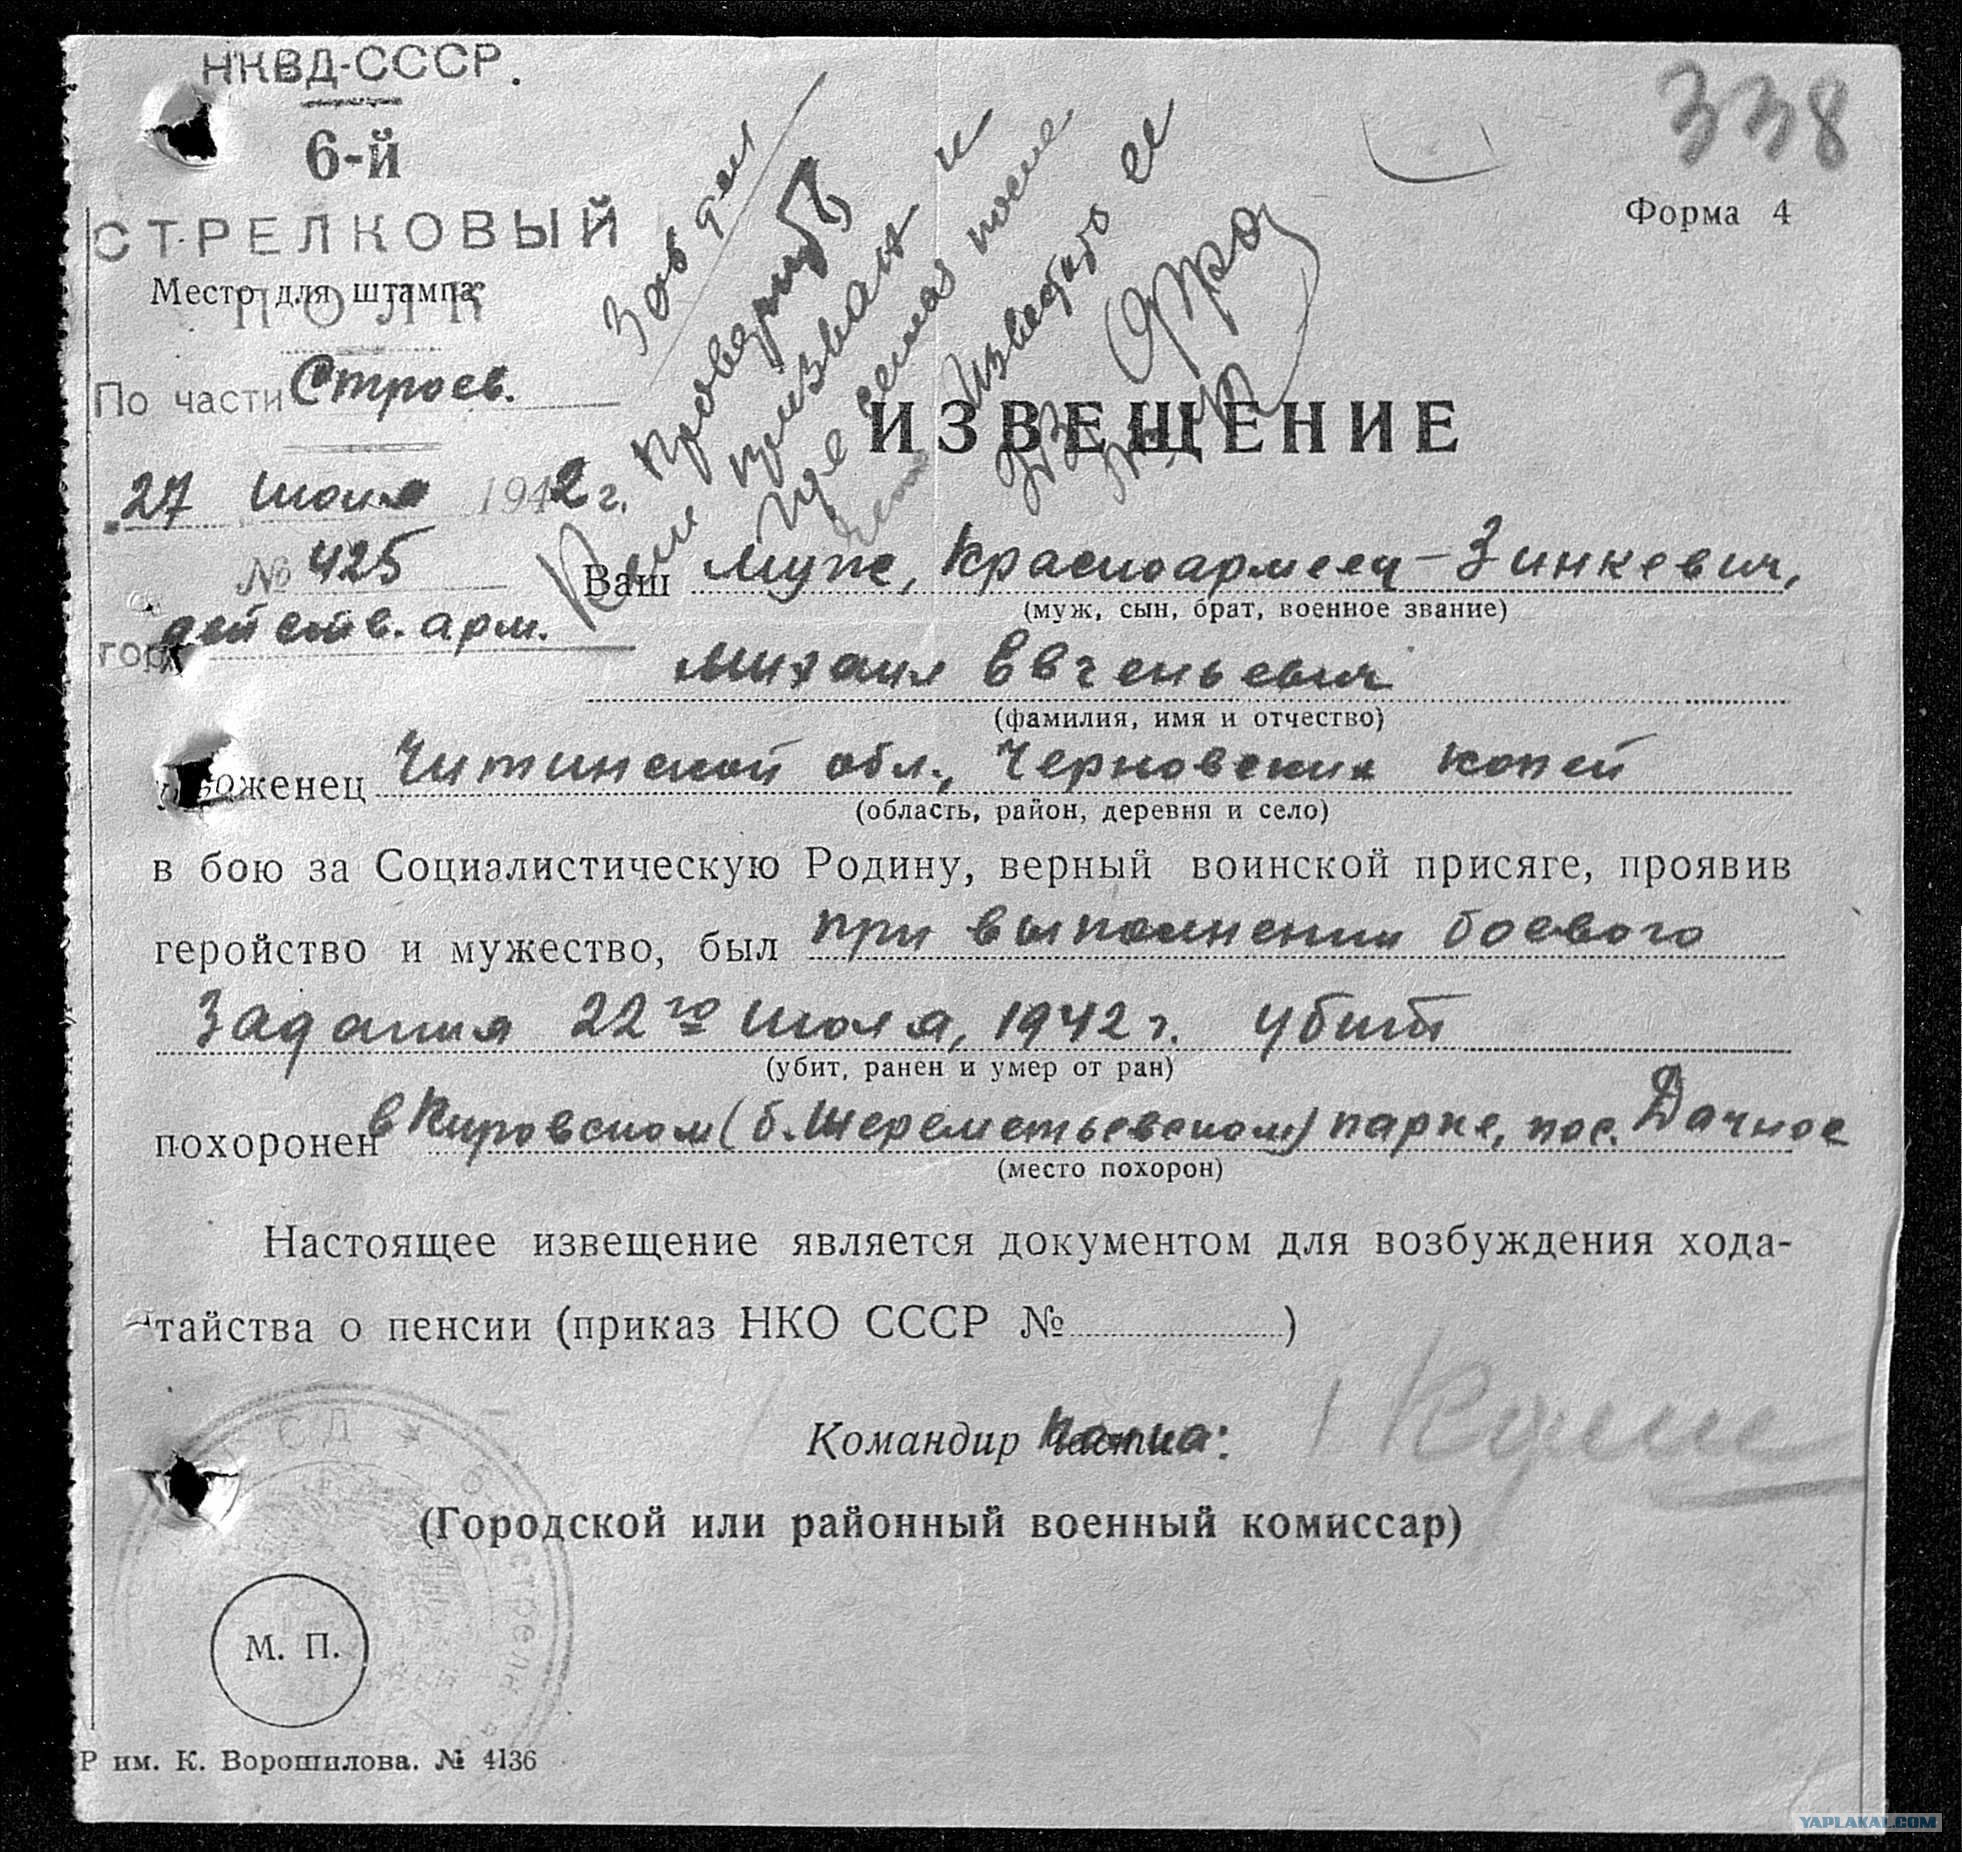 НКВД-СССР.
6-й
СТРЕЛКОВЫЙ
Место для штампа
ПОЛК
По части Строев.
27 июля 1942 г.
№ 425
гор действ. арм.
338
Форма 4
Зав дел
Проверить
призван и
после
Известить ее
ИЗВЕЩЕНИЕ
Ваш муж, Красноармеец – Зинкевич,
(муж, сын, брат, военное звание)
Михаил Евгеньевич
(фамилия, имя и отчество)
уроженец Читинской обл., Черновских копей
(область, район, деревня и село)
в бою за Социалистическую Родину, верный воинской присяге, проявив
геройство и мужество, был при выполнении боевого
задания 22го июля, 1942 г. убит
(убит, ранен и умер от ран)
похоронен в Кировском (б. Шереметьевском) парке, пос. Дачное
(место похорон)
Настоящее извещение является документом для возбуждения хода-
тайства о пенсии (приказ НКО СССР № )
Командир
(Городской или районный военный комиссар)
М. П.
Р им. К. Ворошилова. № 4136
YAPLAKAL.COM